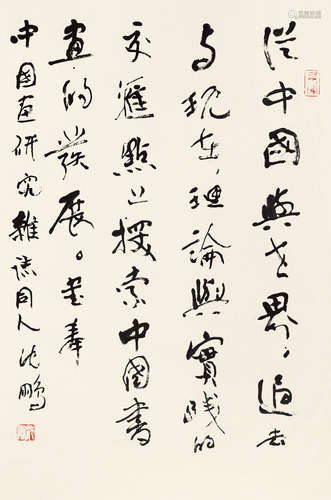 從中國與世界、過去
与現在、理論與實踐的
交匯點上探索中國書
畫的發展。書奉
中国画研究雜誌同人沈鹏